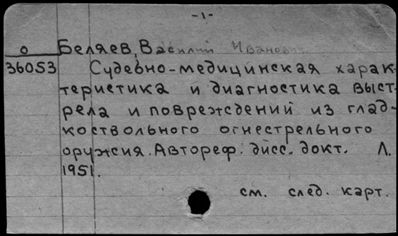 -1-
о Беляев, Василий Иванович
36053 Судебно-медицинская харак-
теристика и диагностика выст-
рела и повреждений из глад-
коствольного огнестрельного
оружия. Автореф. дисс. докт. Л.
1951.
см. след. карт.